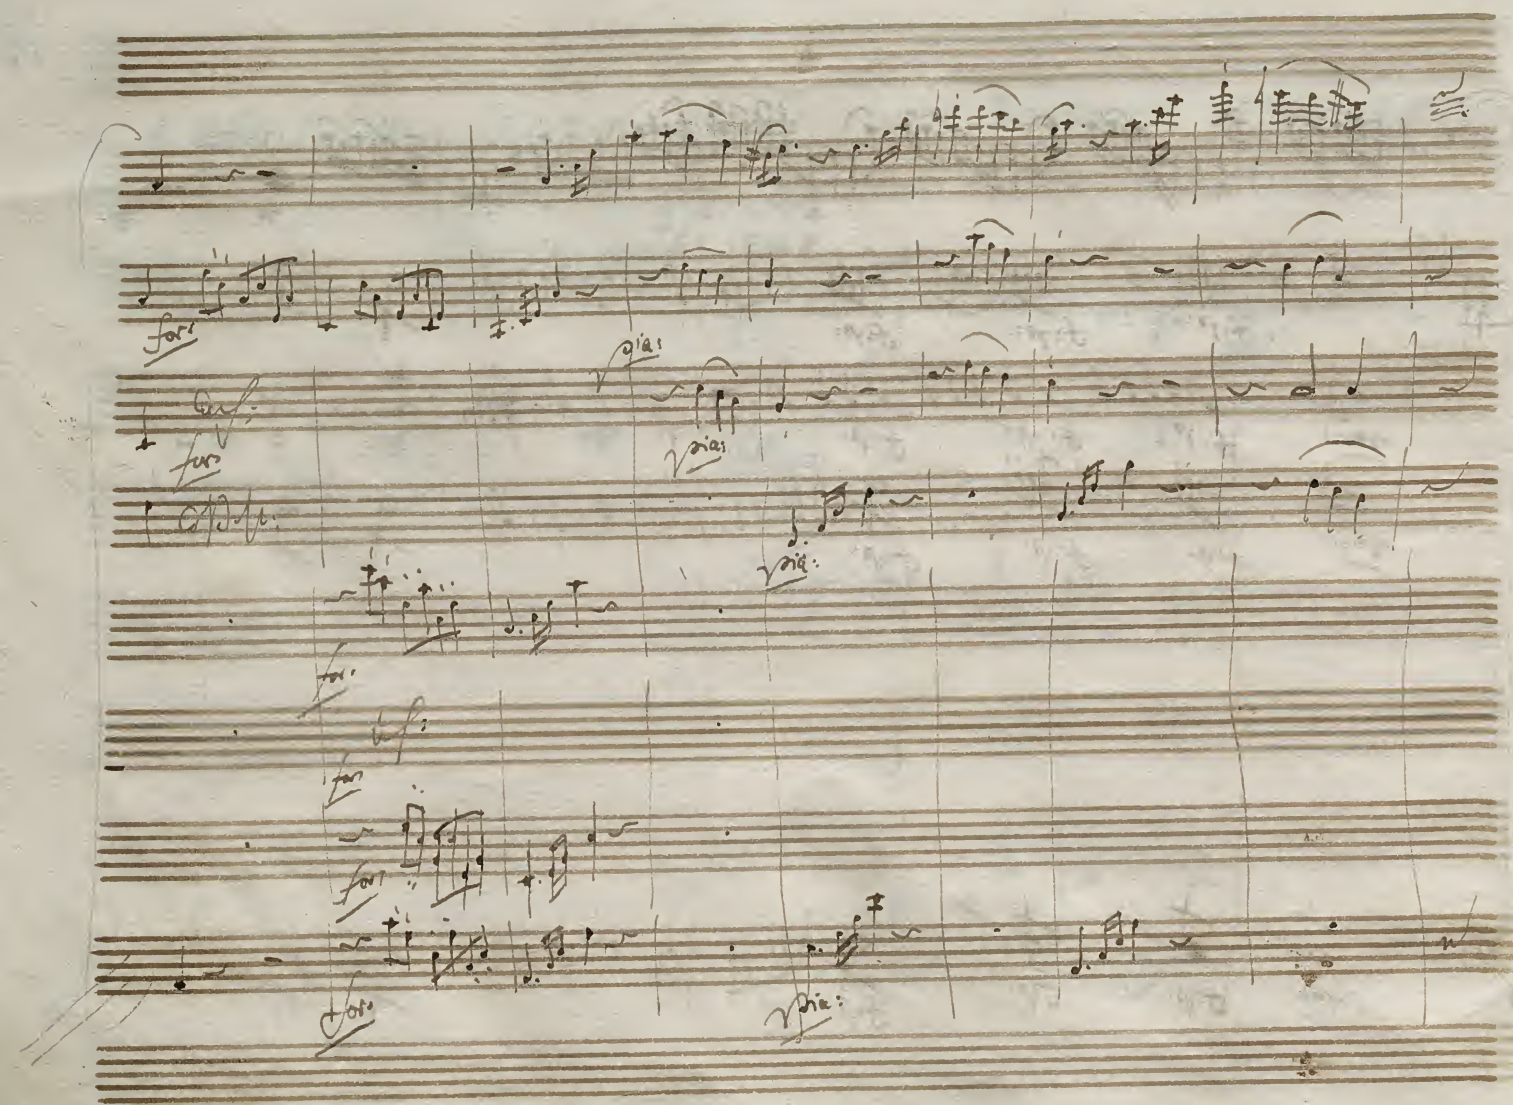 for:
pia:
for:
pia:
pia:
for:
for:
for:
for:
pia: